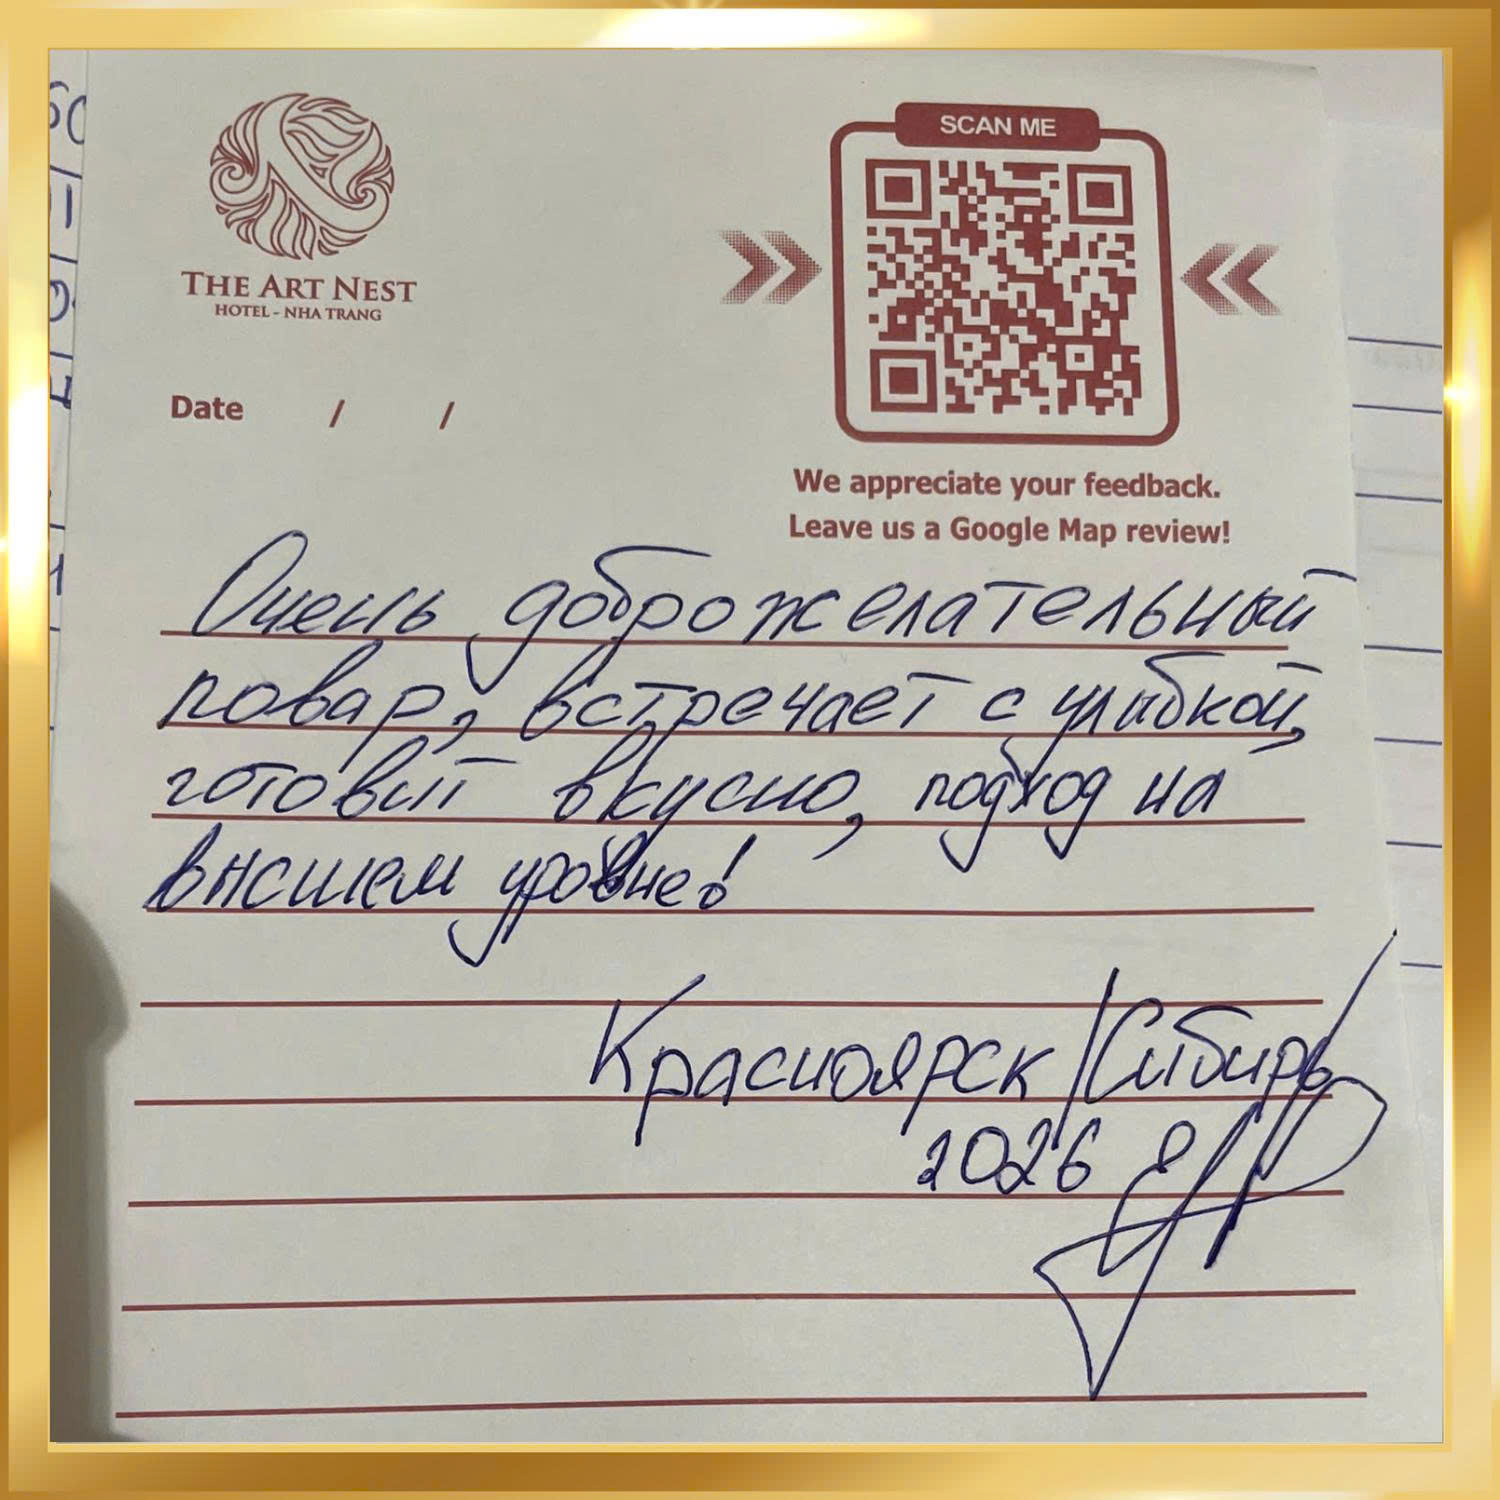 SCAN ME
THE ART NEST
HOTEL - NHA TRANG
Date / /
We appreciate your feedback.
Leave us a Google Map review!
Очень доброжелательный
повар, встречает с улыбкой,
готовит вкусно, подход на
высшем уровне!
Красноярск/Сибирь
2026